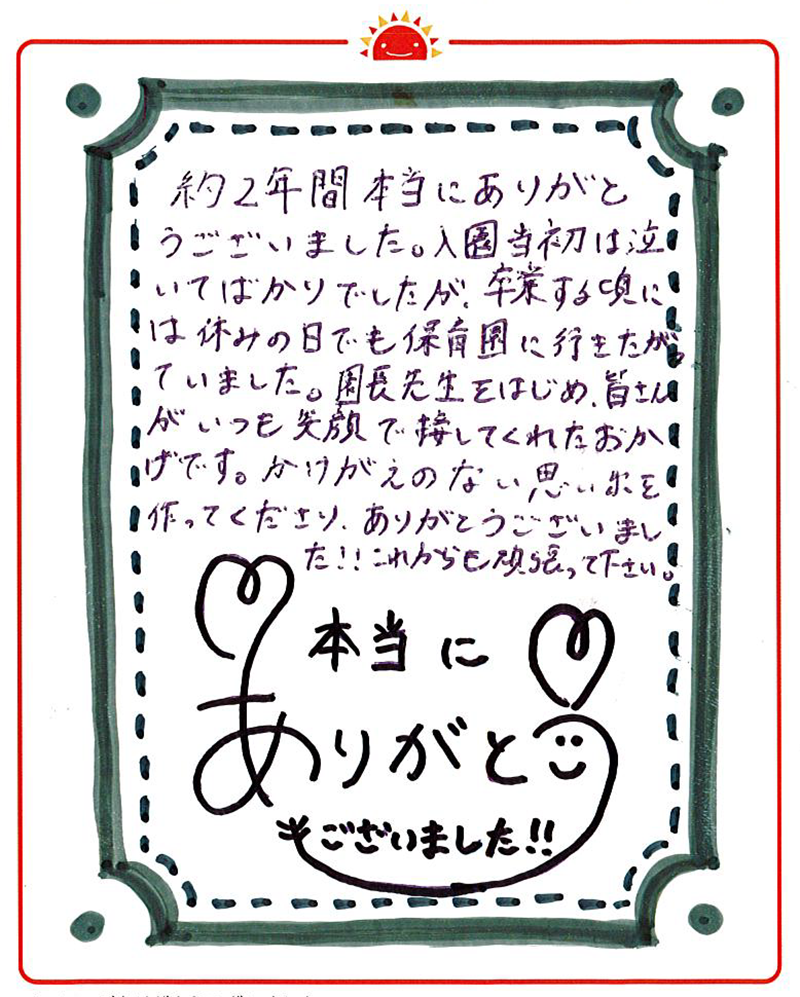 約2年間本当にありがと
うございました。入園当初は泣
いてばかりでしたが、卒業する頃に
は休みの日でも保育園に行きたがっ
ていました。園長先生をはじめ、皆さん
がいつも笑顔で接してくれたおか
げです。かけがえのない思い出を
作ってくださり、ありがとうございまし
た!!これからも頑張って下さい。
本当に
ありがと
うございました!!